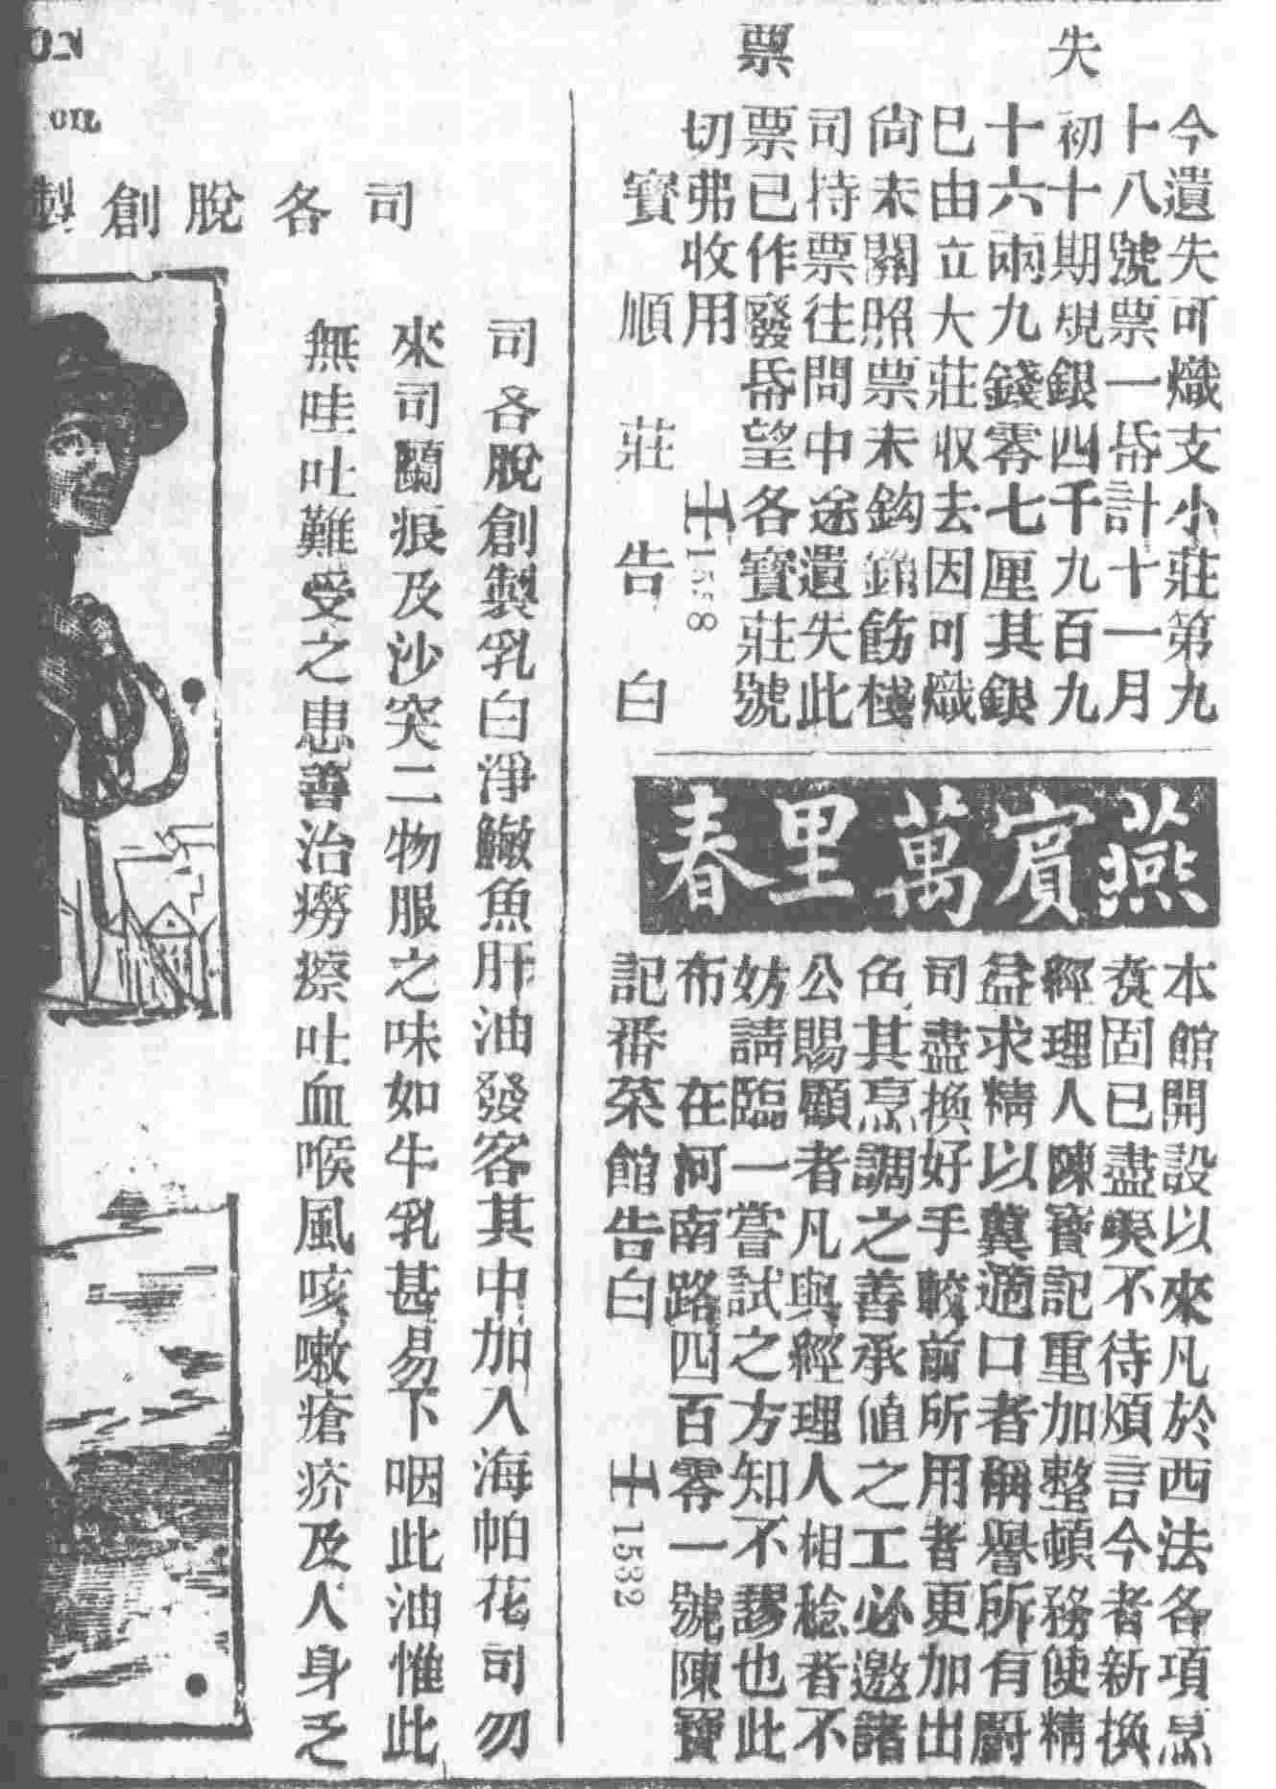 失票
今遺失可熾支小莊第九
十八號票一帋計十一月
初十期規銀四千九百九
十六兩九錢零七厘其銀
已由立大莊收去因可熾
尚未關照票未鈎銷飭棧
司持票往問中途遺失此
票已作廢帋望各寶莊號
切弗收用
1558
寶順莊告白
燕賓萬里春
本館開設以來凡於西法各項烹
煑固已盡美不待煩言今者新換
經理人陳寶記重加整頓務使精
益求精以冀適口者稱譽所有厨
司盡換好手較前所用者更加出
色其烹調之善承値之工必邀諸
公賜顧者凡與經理人相稔者不
妨請臨一嘗試之方知不謬也此
布 在河南路四百零一號陳寶
記番菜館告白
1532
司各脫創製
司各脫創製乳白淨鰵魚肝油發客其中加入海帕花司勿
來司蘭痕及沙突二物服之味如牛乳甚易下咽此油惟此
無哇吐難受之患善治癆瘵吐血喉風咳嗽瘡疥及人身乏